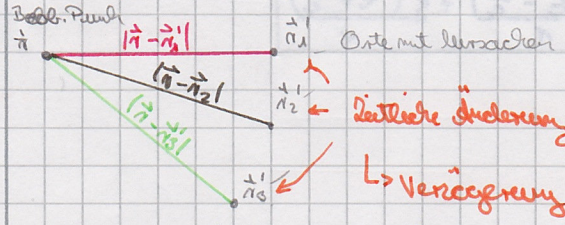 Beob. Punkt
r⃗ |r⃗ - r⃗₁'| r⃗₁' - Orte mit Ursachen
|r⃗ - r⃗₂'| r⃗₂' ← Zeitliche Änderung
|r⃗ - r⃗₃'| r⃗₃' ↳ Verzögerung